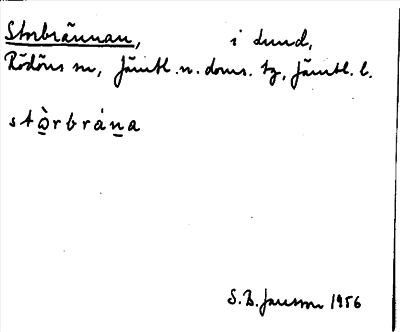 Storbrännan, i Lund,
Rödöns sn, Jämtl. n. doms. tg, Jämtl. l.
stò̱rbráṉa
S. B. Jansson 1956